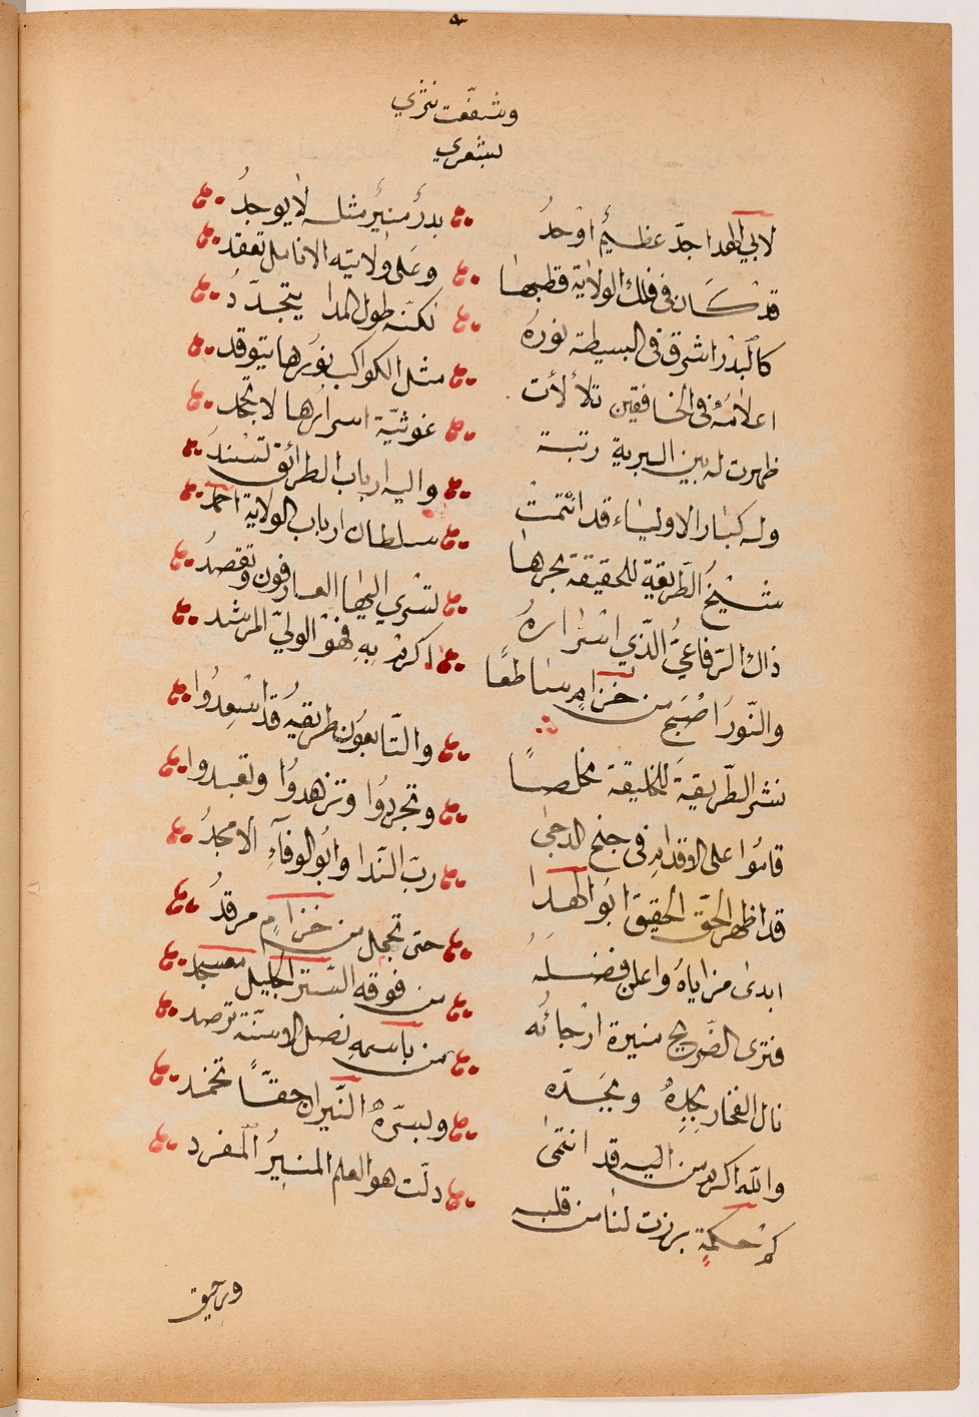 وشفّعت نثري
بشعري
لابي الهدا جدّ عظيمٌ اوحدُ بدرٌ منيرٌ مثله لا يوجدُ
قد كان في فلك الولاية قطبها وعلى ولايته الانامل تعقد
كالبدر اشرق في البسيطة نورهُ لكنّه طول المدا يتجدّدُ
اعلامهُ في الخافقين تلألأت مثل الكواكب نورها يتوقد
ظهرت له بين البرية رتبة غوثيّة اسرارها لا تجحد
وله كبار الاولياء قد انتمت واليه ارباب الطرائق تسندُ
شيخُ الطّريقةِ للحقيقة بحرها سلطان ارباب الولاية احمد
ذاك الرّفاعيُّ الّذي اسرارهُ تسري اليها العارفون وتقصدُ
والنّور اصبح من خزامٍ ساطعًا اكرمْ بهِ فهو الوليّ المرشد
نشر الطّريقةَ للخليقة مخلصًا والتّابعون طريقهُ قد اسعدُوا
قاموا على الاقدام في جنح الدجى وتجردُوا وتزهدوُا وتعبدوا
قد اظهر الحقّ الحقيق ابو الهدا ربّ النّدا وابُو الوفآءِ الامجدُ
ابدى مزاياهُ واعلن فضلهُ حتى تجمل من خزامٍ مرقدُ
فترى الضّريح منيرة ارجائُه من فوقه السّتر الجليل معسجد
نال الفخار بجدِهُ وبجَدّه من باسمهِ نصل الاسنّة ترصد
والله اكرم من اليه قد انتمىٰ ولسرّهُ النّيران حقّاً تخمد
كمْ حكمةٍ برزت لنا من قلبه دلّت هو العلم المنيرُ المفرد
ورحيق